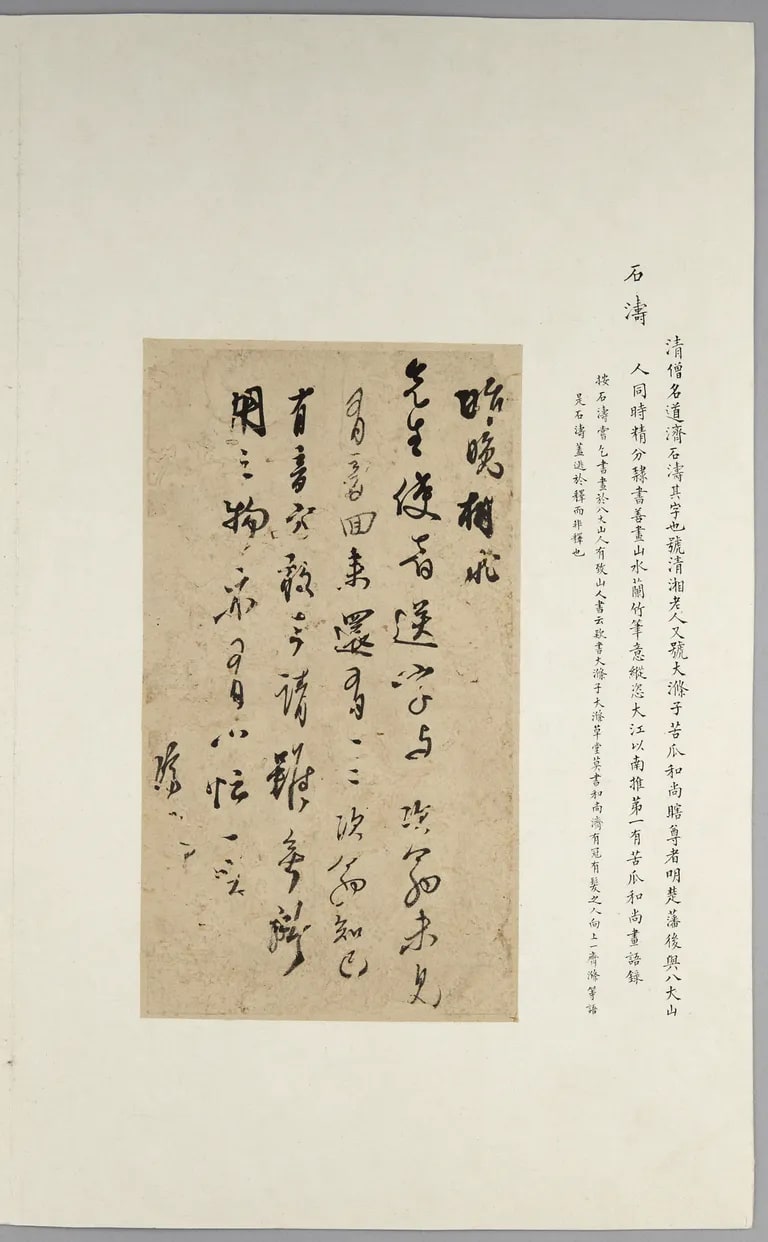 石濤
清僧名道濟石濤其字也號清湘老人又號大滌子苦瓜和尚瞎尊者明楚藩後與八大山
人同時精分隸書善畫山水蘭竹筆意縱恣大江以南推第一有苦瓜和尚畫語錄
按石濤嘗乞書畫於八大山人有致山人書云款書大滌子大滌草堂莫書和尚濟有冠有髮之人向上一齊滌等語
是石濤蓋逃於釋而非釋也
昨晚
先生使者送字与次翁未見
有字回來還有一二次翁知己
有音 敢奇請雖無
用之物亦有小怯一笑
濟